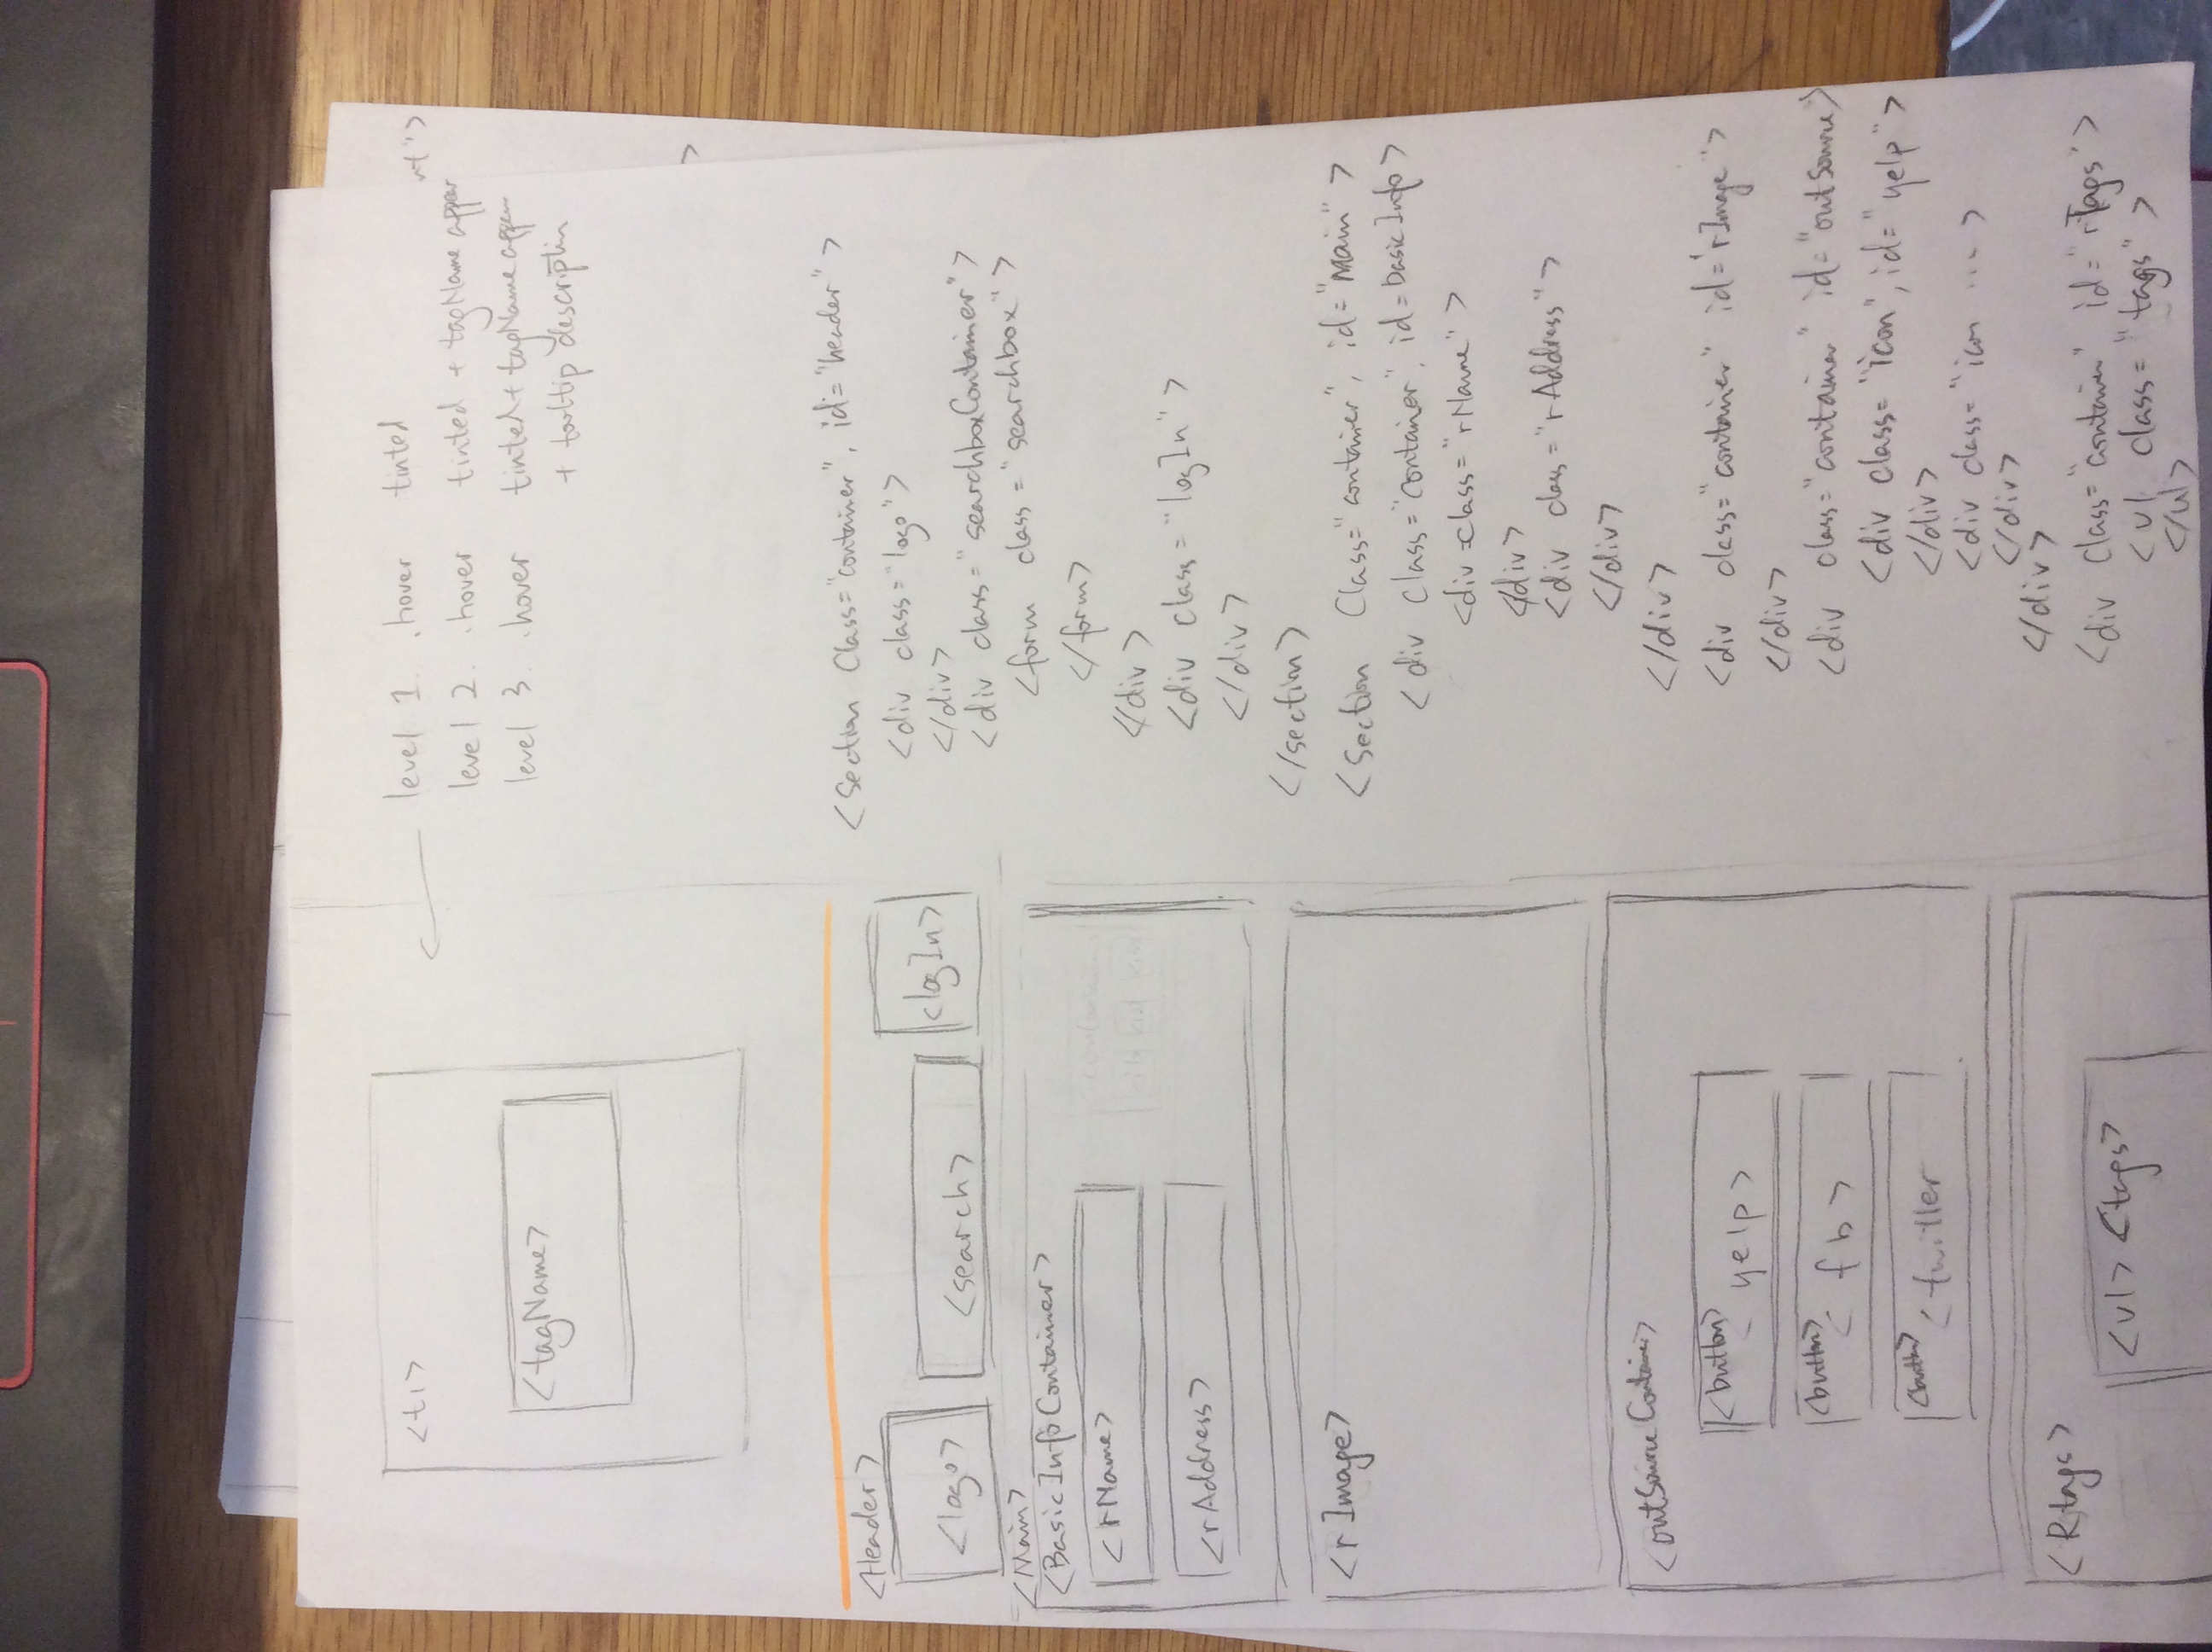 <t1>
<tagName>
level 1. .hover tinted
level 2. .hover tinted + tagName appear
level 3. .hover tinted + tagName appear
+ tooltip description
nt">
>
<Header>
<logo>
<search>
<logIn>
<Main>
<BasicInfoContainer>
<rName>
<rAddress>
<rImage>
<outSourceContainer>
<button>
yelp>
<button>
<fb>
<button>
<twitter
<Rtags>
<ul> <tags>
<Section Class="container", id="header">
<div class="logo">
</div>
<div class="searchboxContainer">
<form class="searchbox">
</form>
</div>
<div class="logIn">
</div>
</section>
<Section Class="container", id="Main">
<div Class="container", id=basicInfo>
<div class="rName">
</div>
<div class="rAddress">
</div>
</div>
<div class="container" id='rImage">
</div>
<div class="container" id="outSource>
<div class="icon", id="yelp">
</div>
<div class="icon ... >
</div>
</div>
<div Class="container" id="rTags">
<ul class="tags">
</ul>